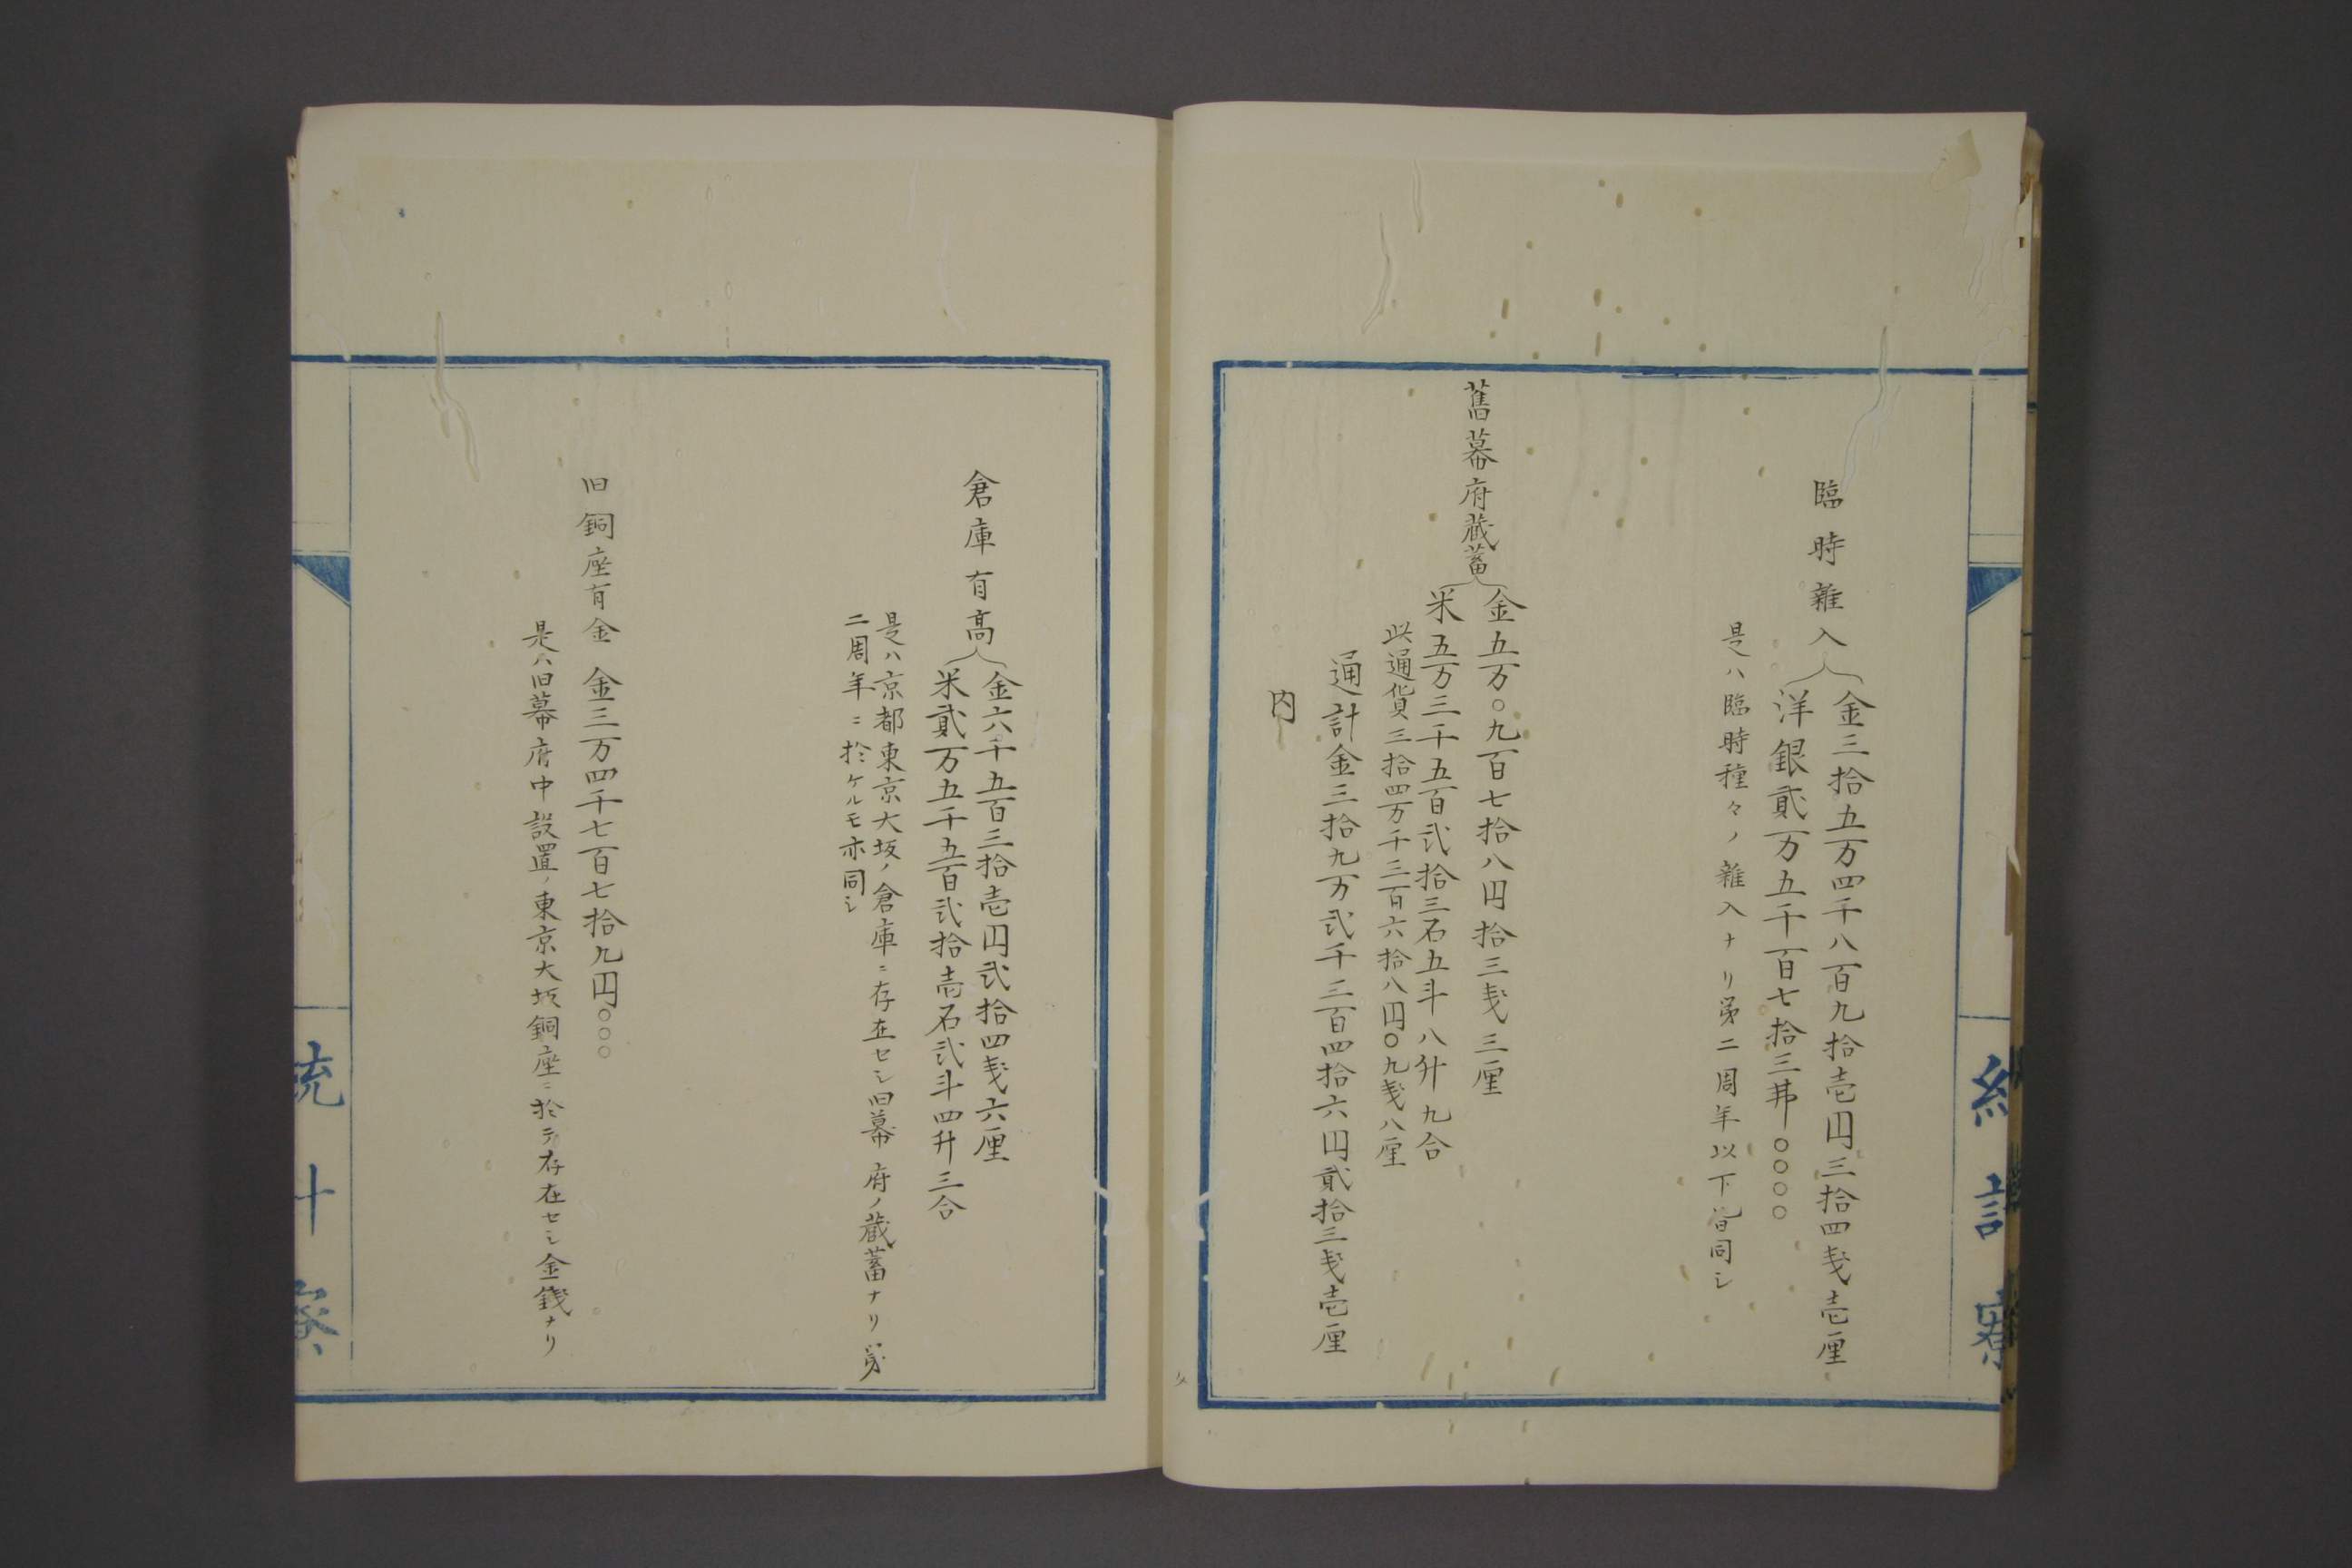 臨時雜入
金三拾五万四千八百九拾壱円三拾四戋壱厘
洋銀貳万五千百七拾三弗〇〇〇〇
是ハ臨時種々ノ雜入ナリ第二周年以下皆同シ
舊幕府蔵蓄
金五万〇九百七拾八円拾三戋三厘
米五万三千五百弐拾三石五斗八升九合
此通貨三拾四万千三百六拾八円〇九戋八厘
通計金三拾九万弐千三百四拾六円貳拾三戋壱厘
内
倉庫有高
金六千五百三拾壱円弐拾四戋六厘
米貳万五千五百弐拾壱石弐斗四升三合
是ハ京都東京大坂ノ倉庫ニ存在セシ旧幕府ノ蔵蓄ナリ第
二周年ニ於ケルモ亦同シ
旧銅座有金 金三万四千七百七拾九円〇〇〇
是ハ旧幕府中設置ノ東京大坂銅座ニ於テ存在セシ金錢ナリ
統計寮